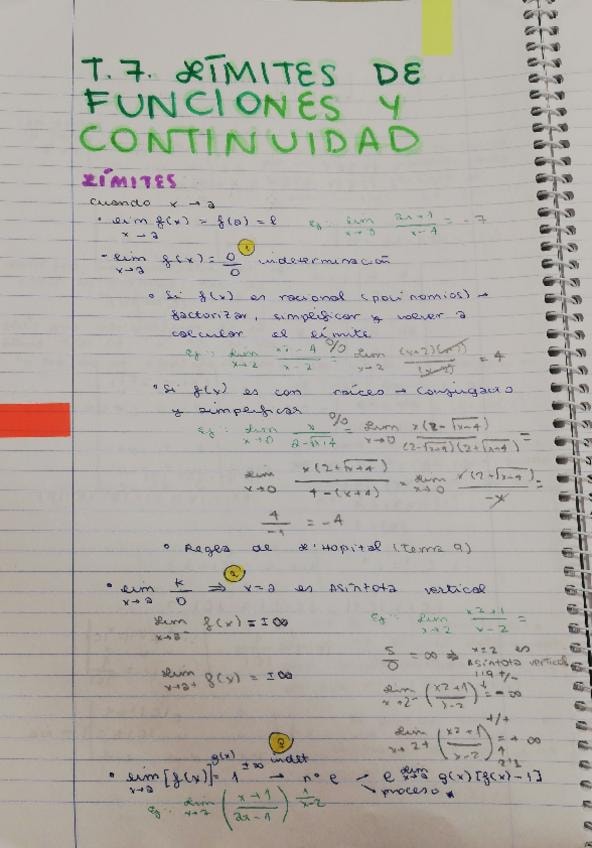 T.7. LÍMITES DE
FUNCIONES Y
CONTINUIDAD
LÍMITES
cuando x → a
• lim f(x) = f(a) = l Ej: lim x→3 (2x+1)/(x-4) = -7
x → a
- lim x→a f(x) = 0/0 ① indeterminación
• Si f(x) es racional (polinomios) →
factorizar, simplificar y volver a
calcular el límite
Ej: lim x→2 (x²-4)/(x-2) 0/0 = lim x→2 (x+2)(x-2)/(x-2) = 4
• Si f(x) es con raíces → conjugado
y simplificar
Ej: lim x→0 x/(2-√x+4) 0/0 = lim x→0 x(2-√x-4)/(2-√x+4)(2+√x+4) =
lim x→0 x(2+√x+4)/(4-(x+4)) = lim x→0 x(2+√x-4)/-x =
4/-1 = -4
• Regla de L'Hopital (tema 9)
• lim x→a k/0 ② ⇒ x=a es Asíntota vertical
lim x→a⁻ f(x) = ±∞ Ej: lim x→2 (x2+1)/(x-2) =
5/0 = ∞ ⇒ x=2 es
Asíntota vertical
lim x→a+ f(x) = ±∞
1'9 +/-
lim x→2⁻ ((x2+1)/(x-2)) = -∞
+/+
lim x→2+ ((x2+1)/(x-2)) = +∞
2'1
• lim x→a [f(x)]^g(x) = 1^±∞ indet → nº e → e^lim x→a g(x)[f(x)-1]
proceso
Ej: lim x→2 ((x+1)/(2x-1))^1/(x-2)